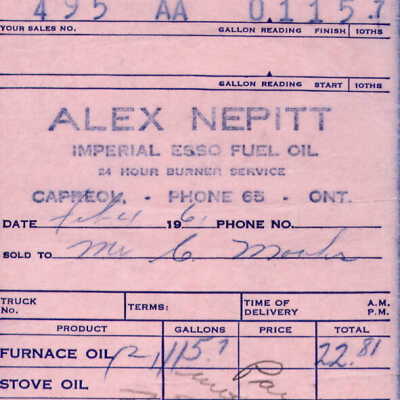 495 AA 0115.7
YOUR SALES NO. GALLON READING FINISH 10THS
GALLON READING START 10THS
ALEX NEPITT
IMPERIAL ESSO FUEL OIL
24 HOUR BURNER SERVICE
CAPREOL. - PHONE 65 - ONT.
DATE Feb 4 196 PHONE NO.
SOLD TO Mr C.
TRUCK NO. TERMS: TIME OF DELIVERY A.M. P.M.
PRODUCT GALLONS PRICE TOTAL
FURNACE OIL 115.7 22.81
STOVE OIL